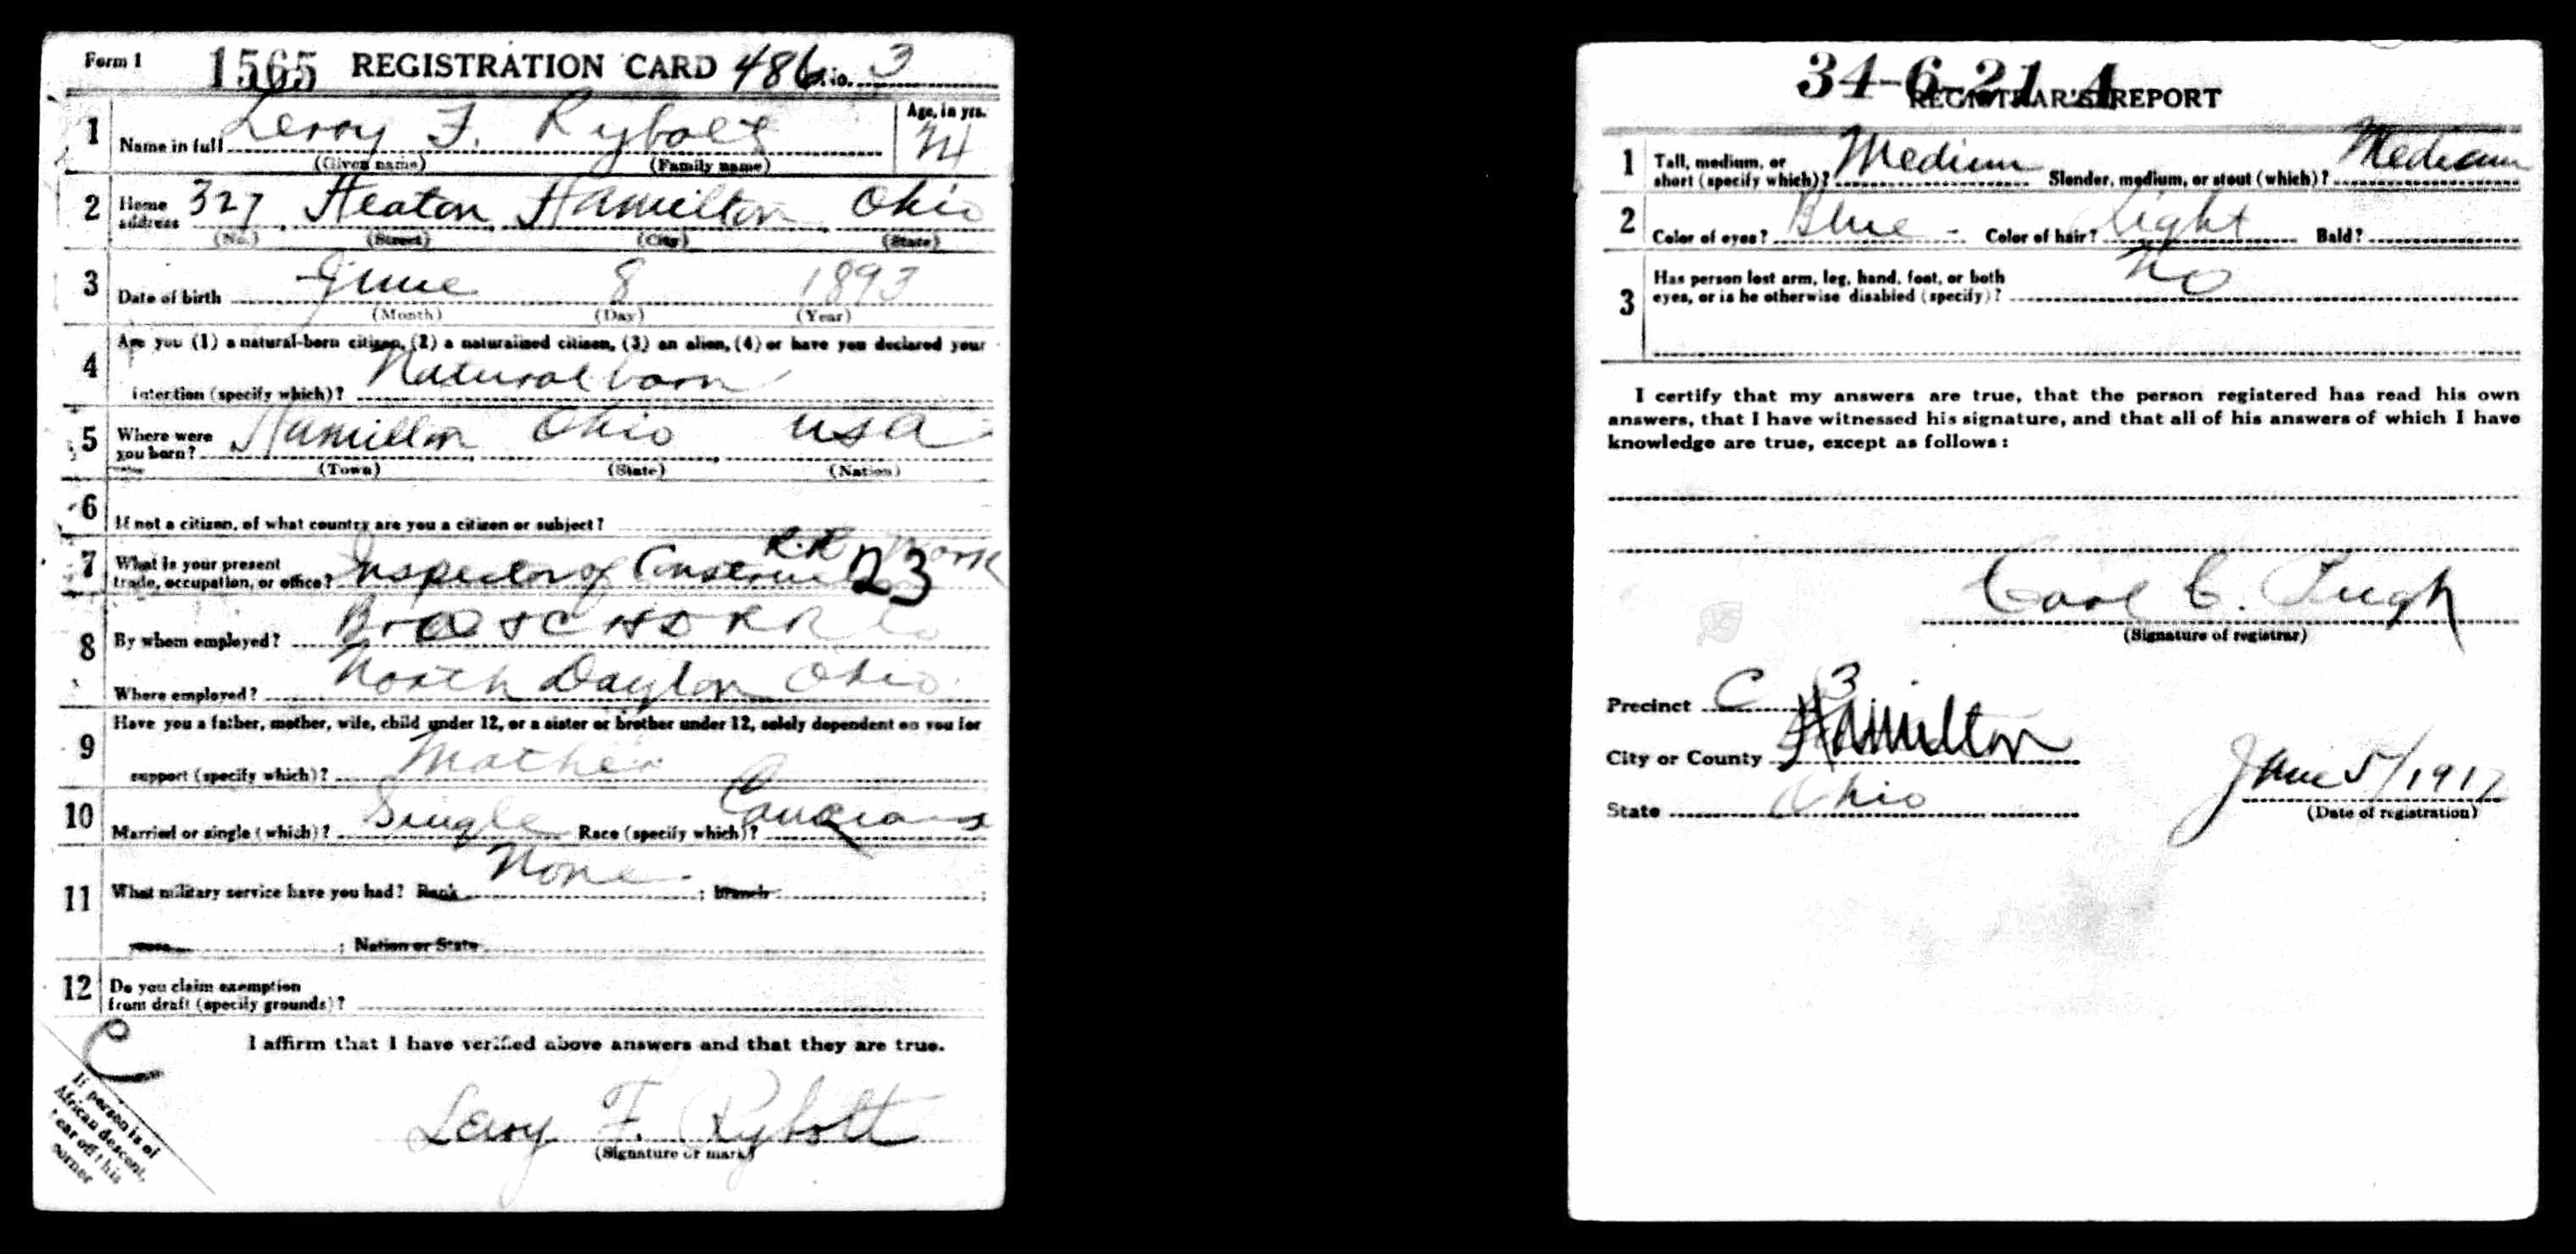 Form 1 1565 REGISTRATION CARD 486 No. 3
1 Name in full Leroy F. Rybolt Age, in yrs.
(Given name) (Family name) 24
2 Home address 327 Heaton Hamilton Ohio
(No.) (Street) (City) (State)
3 Date of birth June 8 1893
(Month) (Day) (Year)
4 Are you (1) a natural-born citizen, (2) a naturalized citizen, (3) an alien, (4) or have you declared your
intention (specify which)? Natural born
5 Where were you born? Hamilton Ohio USA
(Town) (State) (Nation)
6 If not a citizen, of what country are you a citizen or subject?
7 What is your present trade, occupation, or office? Inspector of R.R. Work 23
8 By whom employed? R R Co
Where employed? North Dayton Ohio
9 Have you a father, mother, wife, child under 12, or a sister or brother under 12, solely dependent on you for
support (specify which)? Mother
10 Married or single (which)? Single Race (specify which)?
11 What military service have you had? Rank None ; branch ;
years ; Nation or State
12 Do you claim exemption
from draft (specify grounds)?
I affirm that I have verified above answers and that they are true.
C
If person is of
African descent,
tear off this
corner
Leroy F. Rybolt
(Signature or mark)
34-6-21 A
REGISTRAR'S REPORT
1 Tall, medium, or short (specify which)? Medium Slender, medium, or stout (which)? Medium
2 Color of eyes? Blue Color of hair? Light Bald?
3 Has person lost arm, leg, hand, foot, or both
eyes, or is he otherwise disabled (specify)? No
I certify that my answers are true, that the person registered has read his own
answers, that I have witnessed his signature, and that all of his answers of which I have
knowledge are true, except as follows:
Carl C. Pugh
(Signature of registrar)
Precinct C 3
City or County Hamilton
State Ohio
June 5/1917
(Date of registration)